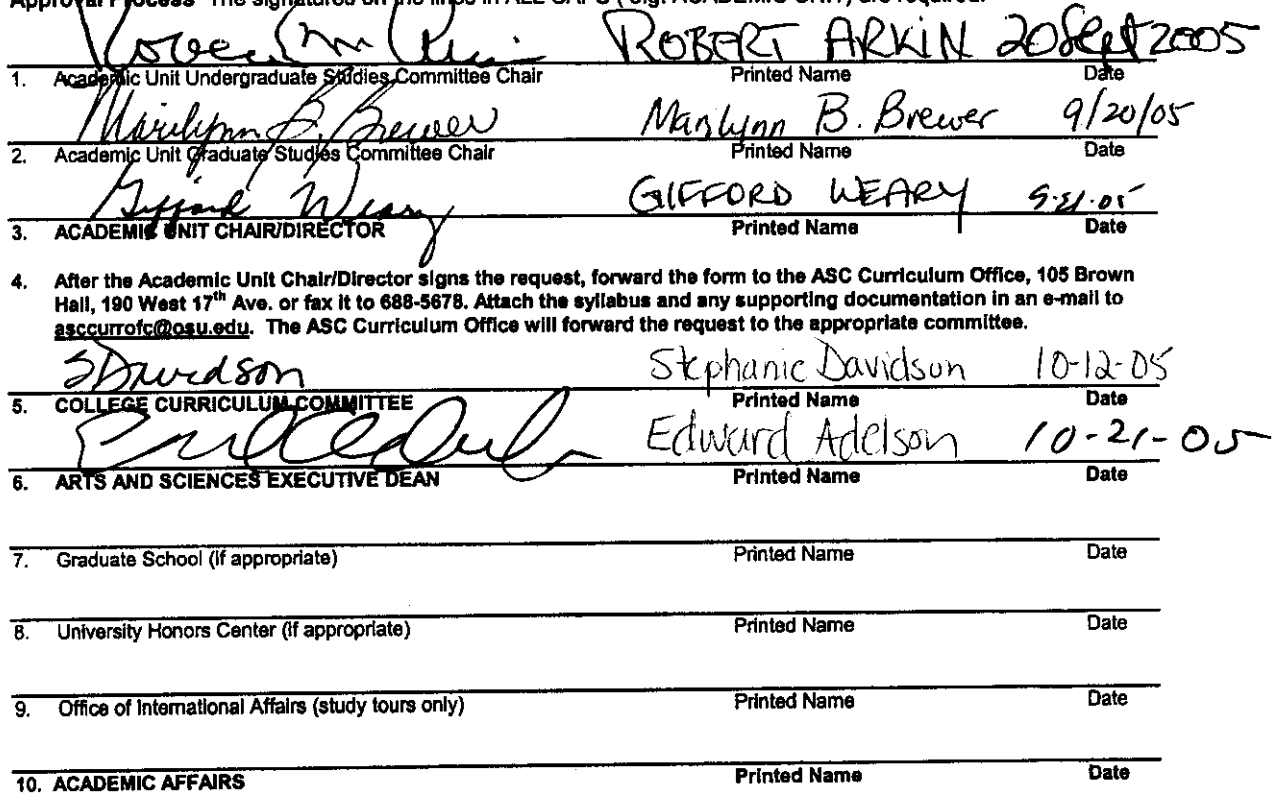 Approval Process The signatures on the lines in ALL CAPS ( e.g. ACADEMIC UNIT) are required.
ROBERT ARKIN 20 Sept 2005
1. Academic Unit Undergraduate Studies Committee Chair Printed Name Date
Marilynn B. Brewer Marilynn B. Brewer 9/20/05
2. Academic Unit Graduate Studies Committee Chair Printed Name Date
Gifford Weary GIFFORD WEARY 9.21.05
3. ACADEMIC UNIT CHAIR/DIRECTOR Printed Name Date
4. After the Academic Unit Chair/Director signs the request, forward the form to the ASC Curriculum Office, 105 Brown
Hall, 190 West 17th Ave. or fax it to 688-5678. Attach the syllabus and any supporting documentation in an e-mail to
asccurrofc@osu.edu. The ASC Curriculum Office will forward the request to the appropriate committee.
SDavidson Stephanie Davidson 10-12-05
5. COLLEGE CURRICULUM COMMITTEE Printed Name Date
Edward Adelson 10-21-05
6. ARTS AND SCIENCES EXECUTIVE DEAN Printed Name Date
7. Graduate School (if appropriate) Printed Name Date
8. University Honors Center (if appropriate) Printed Name Date
9. Office of International Affairs (study tours only) Printed Name Date
10. ACADEMIC AFFAIRS Printed Name Date